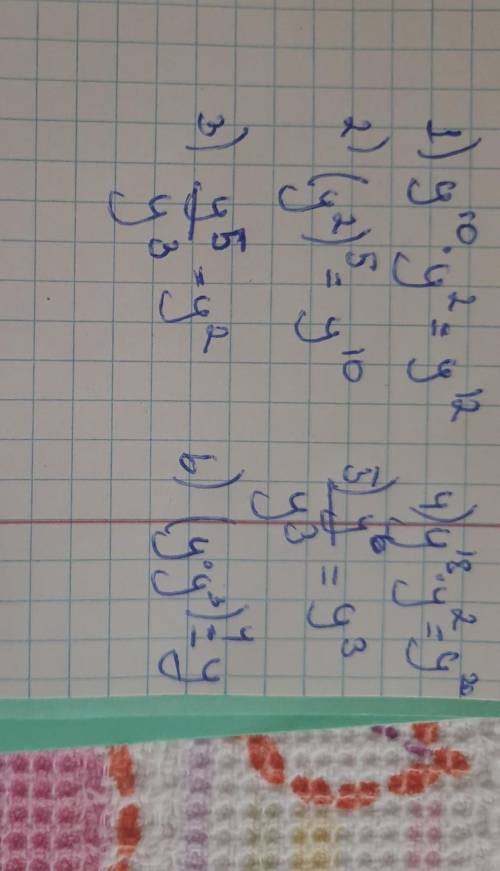 1) y¹⁰ · y² = y¹²
2) (y²)⁵ = y¹⁰
3) y⁵/y³ = y²
4) y¹⁸ · y² = y²⁰
5) y⁶/y³ = y³
6) (y · y³)⁴ = y